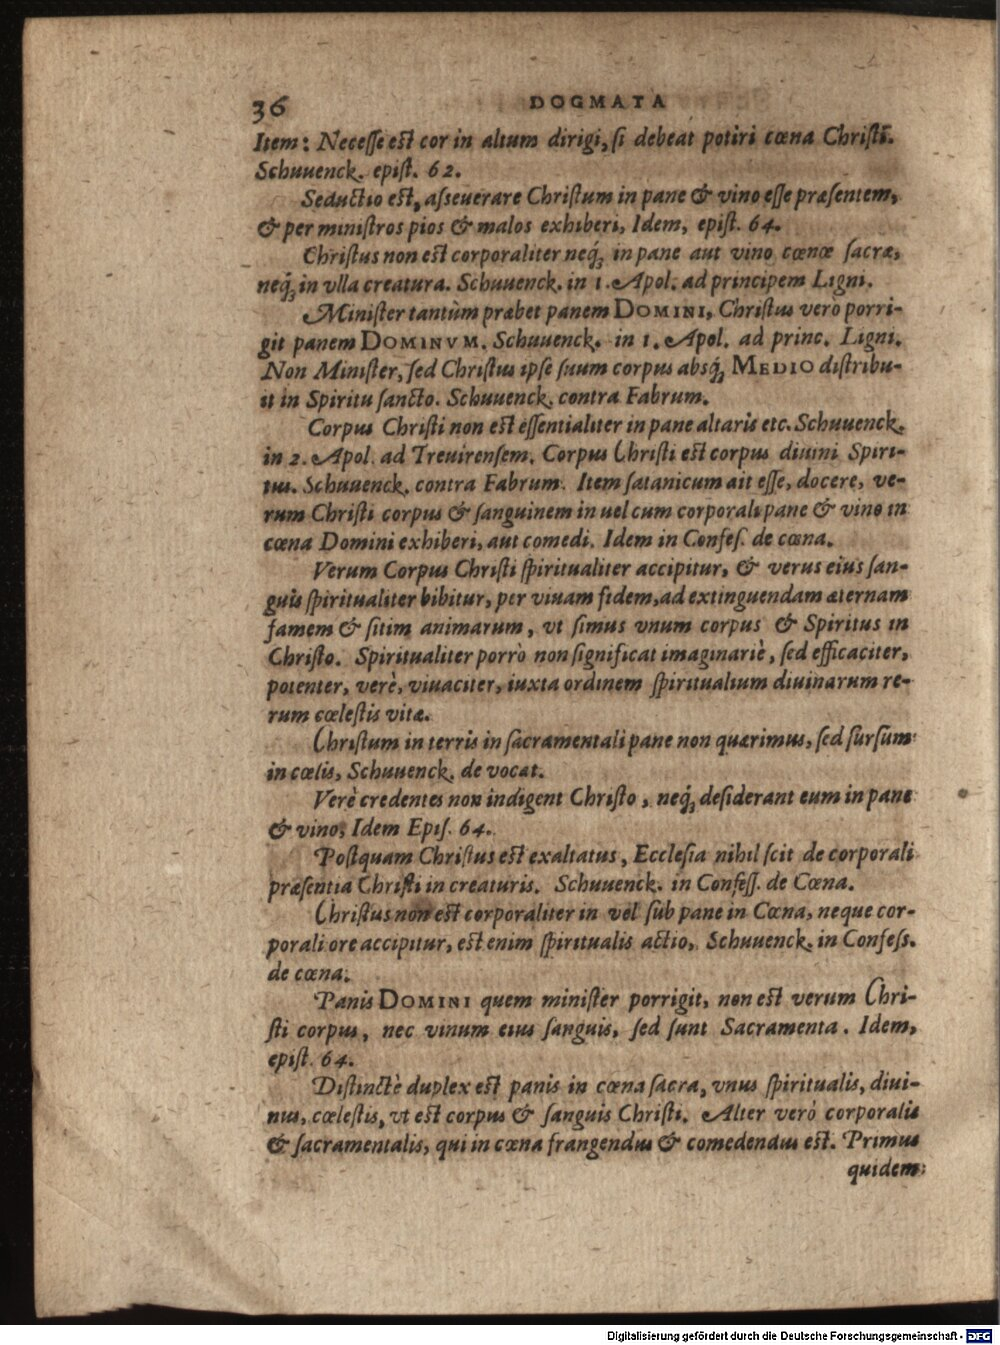 36 DOGMATA
Item: Necesſe est cor in altum dirigi, ſi debeat potiri cœna Chriſti.
Schuuenck. epiſt. 62.
Seductio est, aſseuerare Chriſtum in pane & vino eſſe præſentem,
& per miniſtros pios & malos exhiberi, Idem, epiſt. 64.
Chriſtus non est corporaliter neq́ꝫ in pane aut vino cœnæ ſacræ,
neq́ꝫ in vlla creatura. Schuuenck. in 1. Apol. ad principem Ligni.
Miniſter tantùm præbet panem DOMINI, Chriſtus verò porri-
git panem DOMINVM. Schuuenck. in 1. Apol. ad princ. Ligni.
Non Miniſter, ſed Chriſtus ipſe ſuum corpus absq́ꝫ MEDIO distribu-
it in Spiritu ſancto. Schuuenck. contra Fabrum.
Corpus Chriſti non est eſſentialiter in pane altaris etc. Schuuenck.
in 2. Apol. ad Treuirenſem. Corpus Chriſti est corpus diuini Spiri-
tus. Schuuenck. contra Fabrum. Item ſatanicum ait eſſe, docere, ve-
rum Chriſti corpus & ſanguinem in uel cum corporali pane & vino in
cœna Domini exhiberi, aut comedi. Idem in Confeſ. de cœna.
Verum Corpus Chriſti ſpiritualiter accipitur, & verus eius ſan-
guis ſpiritualiter bibitur, per viuam fidem, ad extinguendam æternam
famem & ſitim animarum, vt ſimus vnum corpus & Spiritus in
Chriſto. Spiritualiter porrò non ſignificat imaginariè, ſed efficaciter,
potenter, verè, viuaciter, iuxta ordinem ſpiritualium diuinarum re-
rum cœleſtis vitæ.
Chriſtum in terris in ſacramentali pane non quærimus, ſed ſurſum
in cœlis, Schuuenck. de vocat.
Verè credentes non indigent Chriſto, neq́ꝫ deſiderant eum in pane
& vino, Idem Epiſ. 64.
Poſtquam Chriſtus est exaltatus, Eccleſia nihil ſcit de corporali
præſentia Chriſti in creaturis. Schuuenck. in Confeſſ. de Cœna.
Chriſtus non est corporaliter in vel ſub pane in Cœna, neque cor-
porali ore accipitur, est enim ſpiritualis actio, Schuuenck. in Confeſs.
de cœna.
Panis DOMINI quem miniſter porrigit, non est verum Chri-
ſti corpus, nec vinum eius ſanguis, ſed ſunt Sacramenta. Idem,
epiſt. 64.
Diſtinctè duplex est panis in cœna ſacra, vnus ſpiritualis, diui-
nus, cœleſtis, vt est corpus & ſanguis Chriſti. Alter verò corporalis
& ſacramentalis, qui in cœna frangendus & comedendus est. Primus
quidem
Digitalisierung gefördert durch die Deutsche Forschungsgemeinschaft - DFG